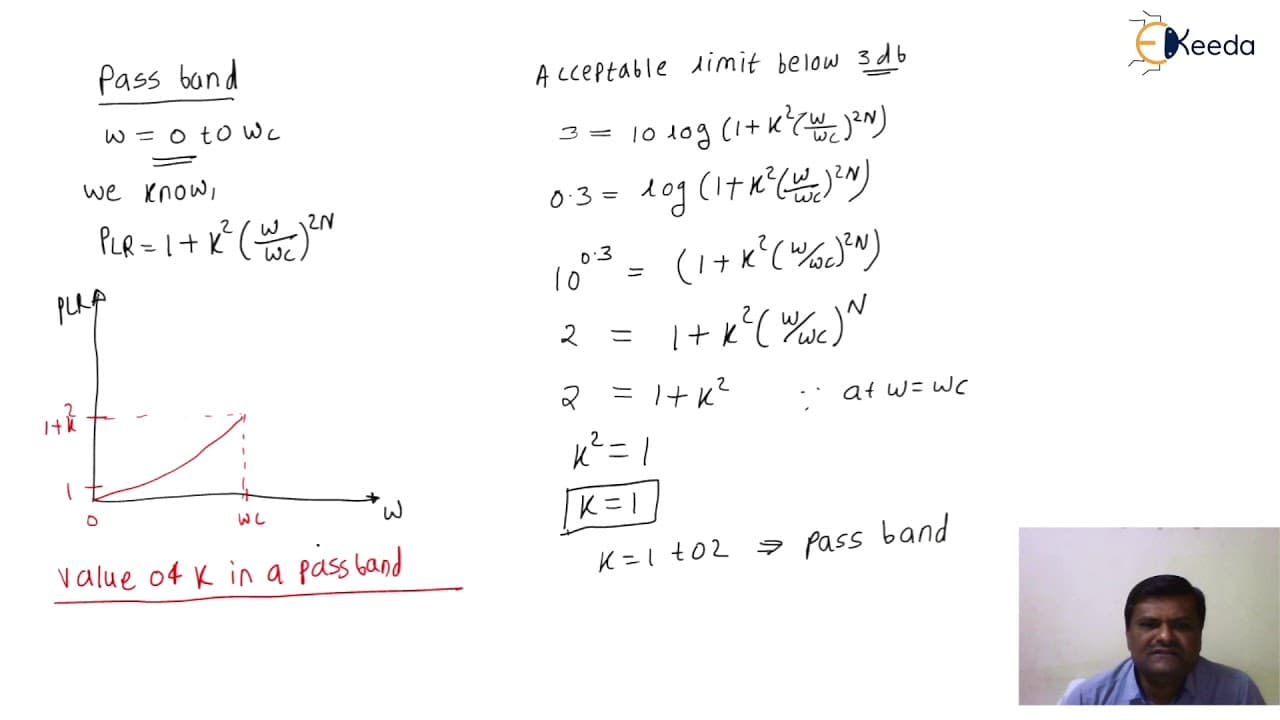 Pass band
w = 0 to wc
we know,
PLR = 1 + K² (w/wc)^2N
PLR
1+K²
1
0
wc
w
Value of K in a passband
Acceptable limit below 3db
3 = 10 log (1 + K² (w/wc)^2N)
0.3 = log (1 + K² (w/wc)^2N)
10^0.3 = (1 + K² (w/wc)^2N)
2 = 1 + K² (w/wc)^N
2 = 1 + K² ∵ at w = wc
K² = 1
K = 1
K = 1 to 2 ⇒ pass band
EKeeda